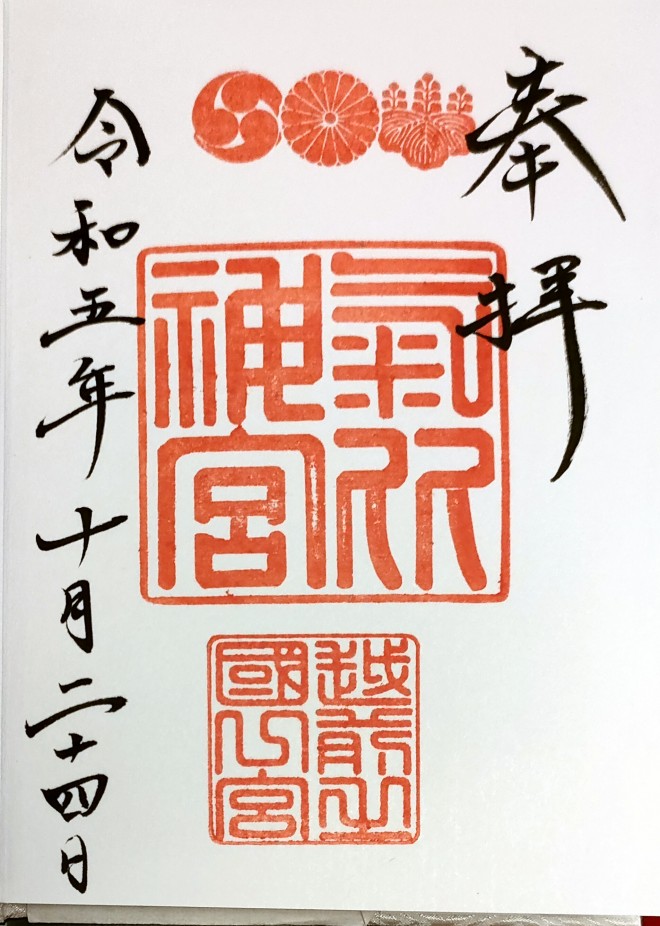 奉拝
氣比
神宮
越前之
國宮
令和五年十月二十四日